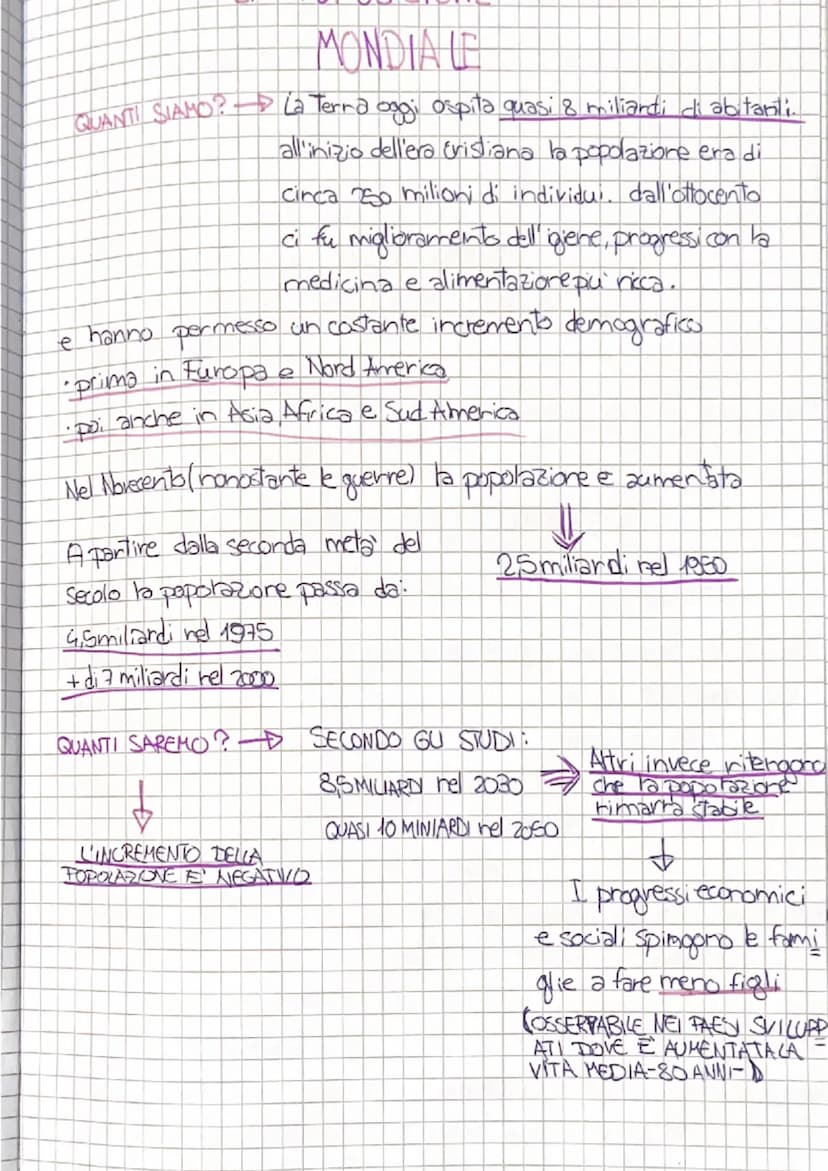 MONDIALE
QUANTI SIAMO? → La Terra oggi ospita quasi 8 miliardi di abitanti.
all'inizio dell'era cristiana la popolazione era di
circa 250 milioni di individui. dall'ottocento
ci fu miglioramento dell'igiene, progressi con la
medicina e alimentazione più ricca.
e hanno permesso un costante incremento demografico
• prima in Europa e Nord America
• poi anche in Asia, Africa e Sud America
Nel Novecento (nonostante le guerre) la popolazione e aumentata
⇓
2,5 miliardi nel 1950
A partire dalla seconda metà del
secolo la poporazione passa da:
4,5 miliardi nel 1975
+ di 7 miliardi nel 2000
QUANTI SAREMO? →
↓
L'INCREMENTO DELLA
POPOLAZIONE E' NEGATIVO
SECONDO GLI STUDI:
8,5 MILIARDI nel 2030 ⇒
QUASI 10 MINIARDI nel 2050
Altri invece ritengono
che la popolazione
rimarrà stabile
↓
I progressi economici
e sociali spingono le fami
glie a fare meno figli
(OSSERVABILE NEI PAESI SVILUPP
ATI DOVE È AUMENTATA LA
VITA MEDIA-80 ANNI-)